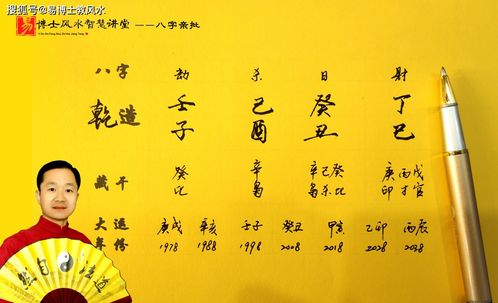 搜狐号@易博士教风水
易 博士风水智慧讲堂 ——八字亲批
Yi Bo Shi Feng Shui Zhi Hui Jiang Tang
八字 劫 杀 日 财
乾造 壬 己 癸 丁
子 酉 丑 巳
藏干 癸 辛 辛己癸 庚丙戊
比 枭 枭杀比 印才官
大運 庚戌 辛亥 壬子 癸丑 甲寅 乙卯 丙辰
年份 1978 1988 1998 2008 2018 2028 2038